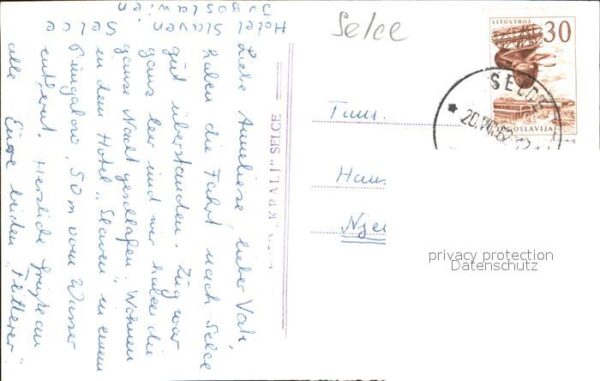 Hotel Slaven, Selce
Jugoslawien
Liebe Anneliese, lieber Vati,
haben die Fahrt nach Selce
gut überstanden. Zug war
ganz leer und wir haben die
ganze Nacht geschlafen. Wohnen
in dem Hotel "Slaven" in einem
Bungalow, 50 m vom Wasser
entfernt. Herzliche Grüße an
alle Eure beiden "Flitterer"
KRALJ" SELCE
Selce
LITOSTROJ
30
JUGOSLAVIJA
SELCE
Fam.
Hans
privacy protection
Datenschutz